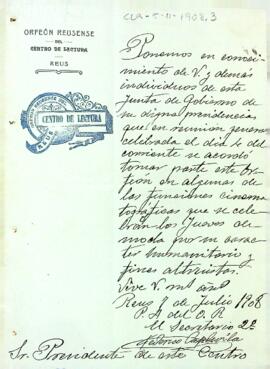 CLR-5-11-1908.3
ORFEÓN REUSENSE
DEL
CENTRO DE LECTURA
REUS
CENTRO DE LECTURA
REUS
Ponemos en conoci-
miento de V. y demás
individuos de esta
Junta de Gobierno de
su digna presidencia
que en reunión general
celebrada el día 4 del
corriente se acordó
tomar parte este Or-
feón en algunas de
las funciones cinema
tográficas que se cele-
bran los Jueves de
moda por su carac-
ter humanitario y
fines altruistas.
Vive V. mˢ añˢ
Reus 8 de Julio 1908
P. A. del O. R.
El Secretario 2º
Sr. Presidente de este Centro